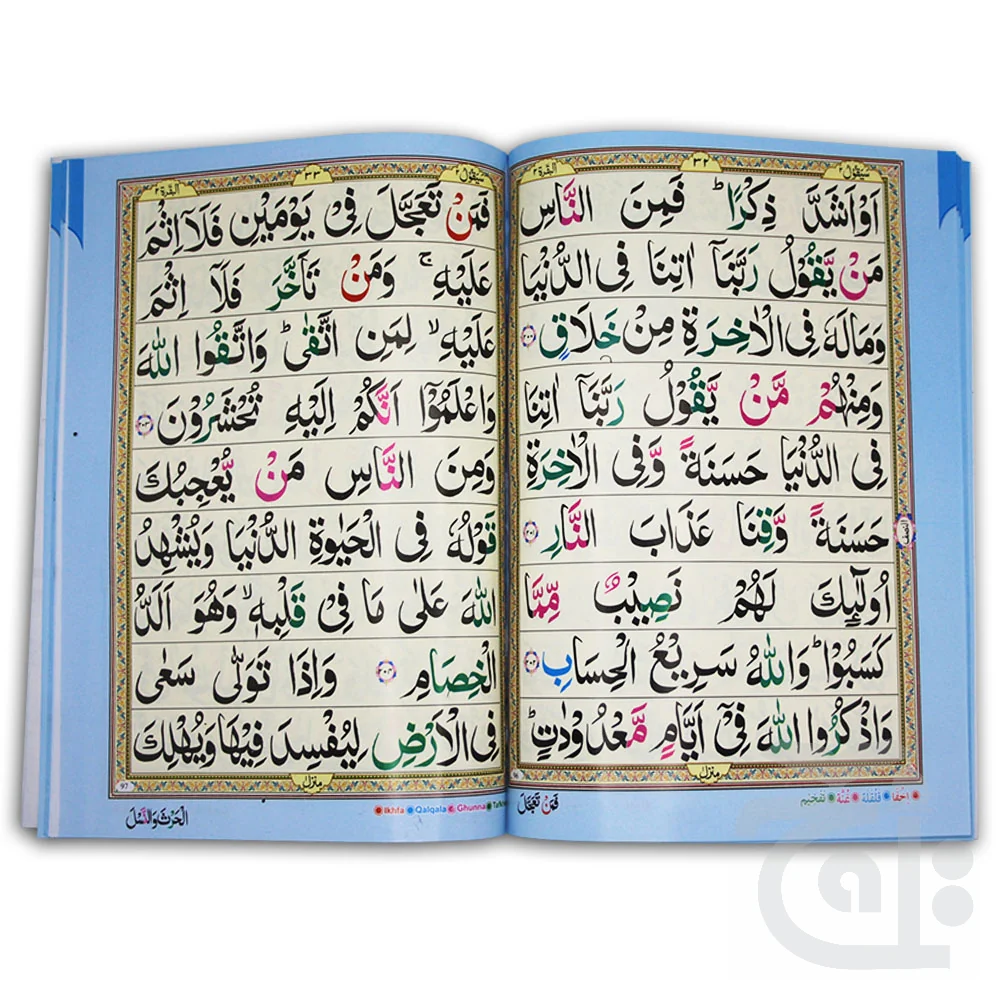 البقرة ٢
٣٢
سيقول ٢
اَوْ اَشَدَّ ذِكْرًا ؕ فَمِنَ النَّاسِ
مَنْ يَّقُوْلُ رَبَّنَاۤ اٰتِنَا فِى الدُّنْيَا
وَمَا لَهٗ فِى الْاٰخِرَةِ مِنْ خَلَاقٍ
وَمِنْهُمْ مَّنْ يَّقُوْلُ رَبَّنَاۤ اٰتِنَا
فِى الدُّنْيَا حَسَنَةً وَّفِى الْاٰخِرَةِ
حَسَنَةً وَّقِنَا عَذَابَ النَّارِ
اُولٰٓئِكَ لَهُمْ نَصِيْبٌ مِّمَّا
كَسَبُوْا ؕ وَاللّٰهُ سَرِيْعُ الْحِسَابِ
وَاذْكُرُوا اللّٰهَ فِىْۤ اَيَّامٍ مَّعْدُوْدٰتٍ ؕ
منزل
اخفا قلقلہ غنّہ تفخيم
فَمَنْ تَعَجَّلَ
البقرة ٢
٣٣
سيقول ٢
فَمَنْ تَعَجَّلَ فِىْ يَوْمَيْنِ فَلَاۤ اِثْمَ
عَلَيْهِ ۚ وَمَنْ تَاَخَّرَ فَلَاۤ اِثْمَ
عَلَيْهِ ۙ لِمَنِ اتَّقٰى ؕ وَاتَّقُوا اللّٰهَ
وَاعْلَمُوْۤا اَنَّكُمْ اِلَيْهِ تُحْشَرُوْنَ
وَمِنَ النَّاسِ مَنْ يُّعْجِبُكَ
قَوْلُهٗ فِى الْحَيٰوةِ الدُّنْيَا وَيُشْهِدُ
اللّٰهَ عَلٰى مَا فِىْ قَلْبِهٖ ۙ وَهُوَ اَلَدُّ
الْخِصَامِ وَاِذَا تَوَلّٰى سَعٰى
فِى الْاَرْضِ لِيُفْسِدَ فِيْهَا وَيُهْلِكَ
97
منزل
Ikhfa Qalqala Ghunna
الْحَرْثَ وَالنَّسْلَ